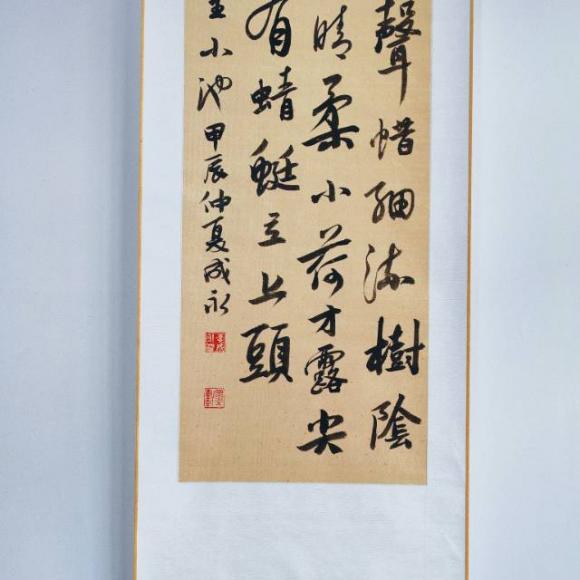 聲惜細流樹陰
晴柔小荷才露尖
有蜻蜓立上頭
里小池甲辰仲夏成永